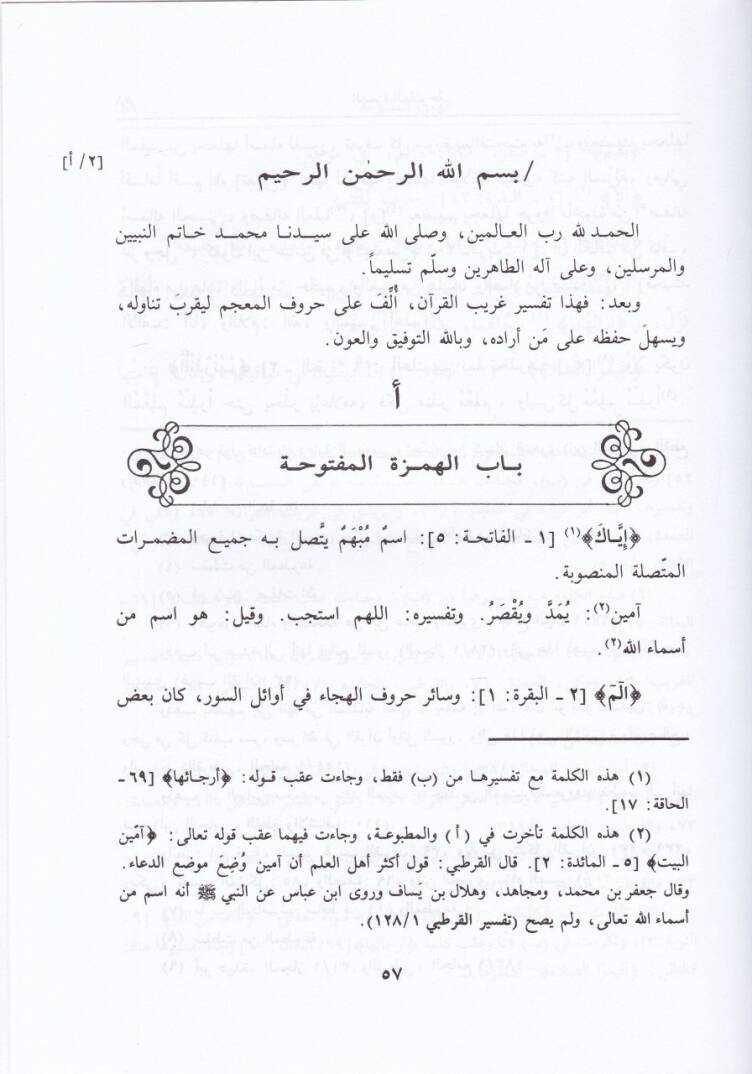 [٢/ أ]
/بسم الله الرحمٰن الرحيم
الحمد لله رب العالمين، وصلى الله على سيدنا محمد خاتم النبيين
والمرسلين، وعلى آله الطاهرين وسلم تسليماً.
وبعد: فهذا تفسير غريب القرآن، أُلِّفَ على حروف المعجم ليقربَ تناوله،
ويسهلَ حفظه على مَن أراده، وبالله التوفيق والعون.
أ
باب الهمزة المفتوحة
﴿إِيَّاكَ﴾(١) [١ ـ الفاتحة: ٥]: اسمٌ مُبْهَمٌ يتَّصل به جميع المضمرات
المتّصلة المنصوبة.
آمين(٢): يُمَدّ ويُقْصَرُ. وتفسيره: اللهم استجب. وقيل: هو اسم من
أسماء الله(٢).
﴿الَمَ﴾ [٢ ـ البقرة: ١]: وسائر حروف الهجاء في أوائل السور، كان بعض
(١) هذه الكلمة مع تفسيرها من (ب) فقط، وجاءت عقب قوله: ﴿أرجائها﴾ [٦٩ ـ
الحاقة: ١٧].
(٢) هذه الكلمة تأخرت في (أ) والمطبوعة، وجاءت فيهما عقب قوله تعالى: ﴿آمّين
البيت﴾ [٥ ـ المائدة: ٢]. قال القرطبي: قول أكثر أهل العلم أن آمين وُضِع موضع الدعاء.
وقال جعفر بن محمد، ومجاهد، وهلال بن يساف وروى ابن عباس عن النبي ﷺ أنه اسم من
أسماء الله تعالى، ولم يصح (تفسير القرطبي ١٢٨/١)
٥٧